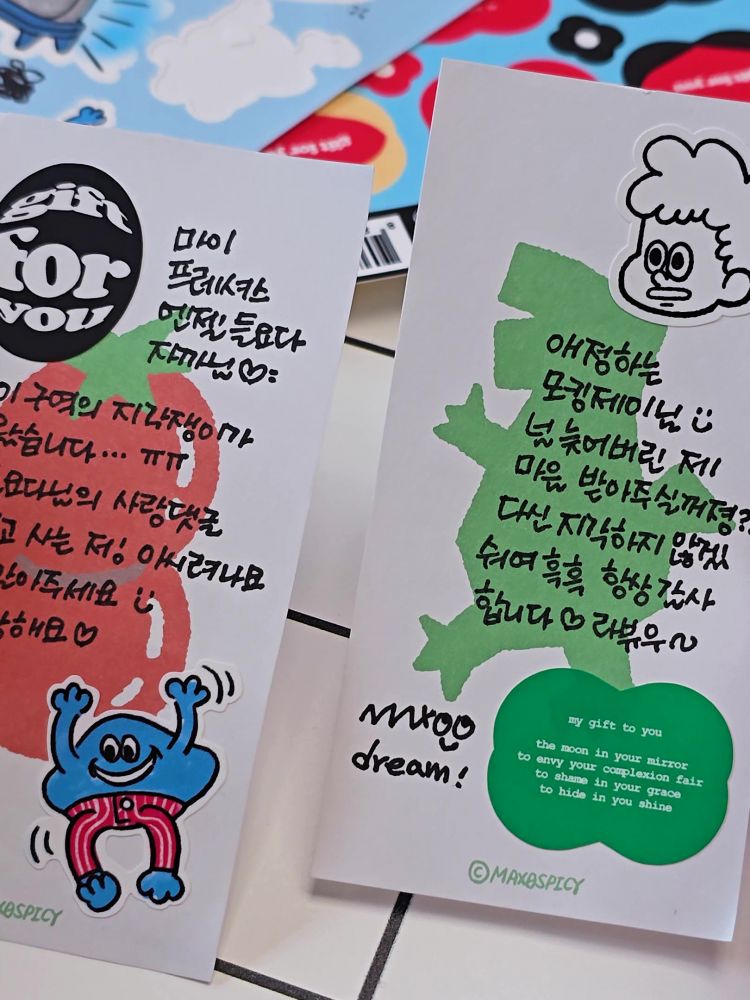 gift
for
you
마이
프레셔스
엔젤 듬요다
자까님♡:
이 구역의 지각쟁이가
왔습니다... ㅠㅠ
요다님의 사랑댓글
고 사는 저!
안아주세요
해요 ♡
gift for you
gift for you
애정하는
모킹제이님
넘 늦어버린 제
마음 받아주실꺼졍??
다신 지각하지 않겠
쉬여 흑흑 항상 감사
합니다 ♡ 라뷰우~
dream!
my gift to you
the moon in your mirror
to envy your complexion fair
to shame in your grace
to hide in you shine
©MAXXSPICY